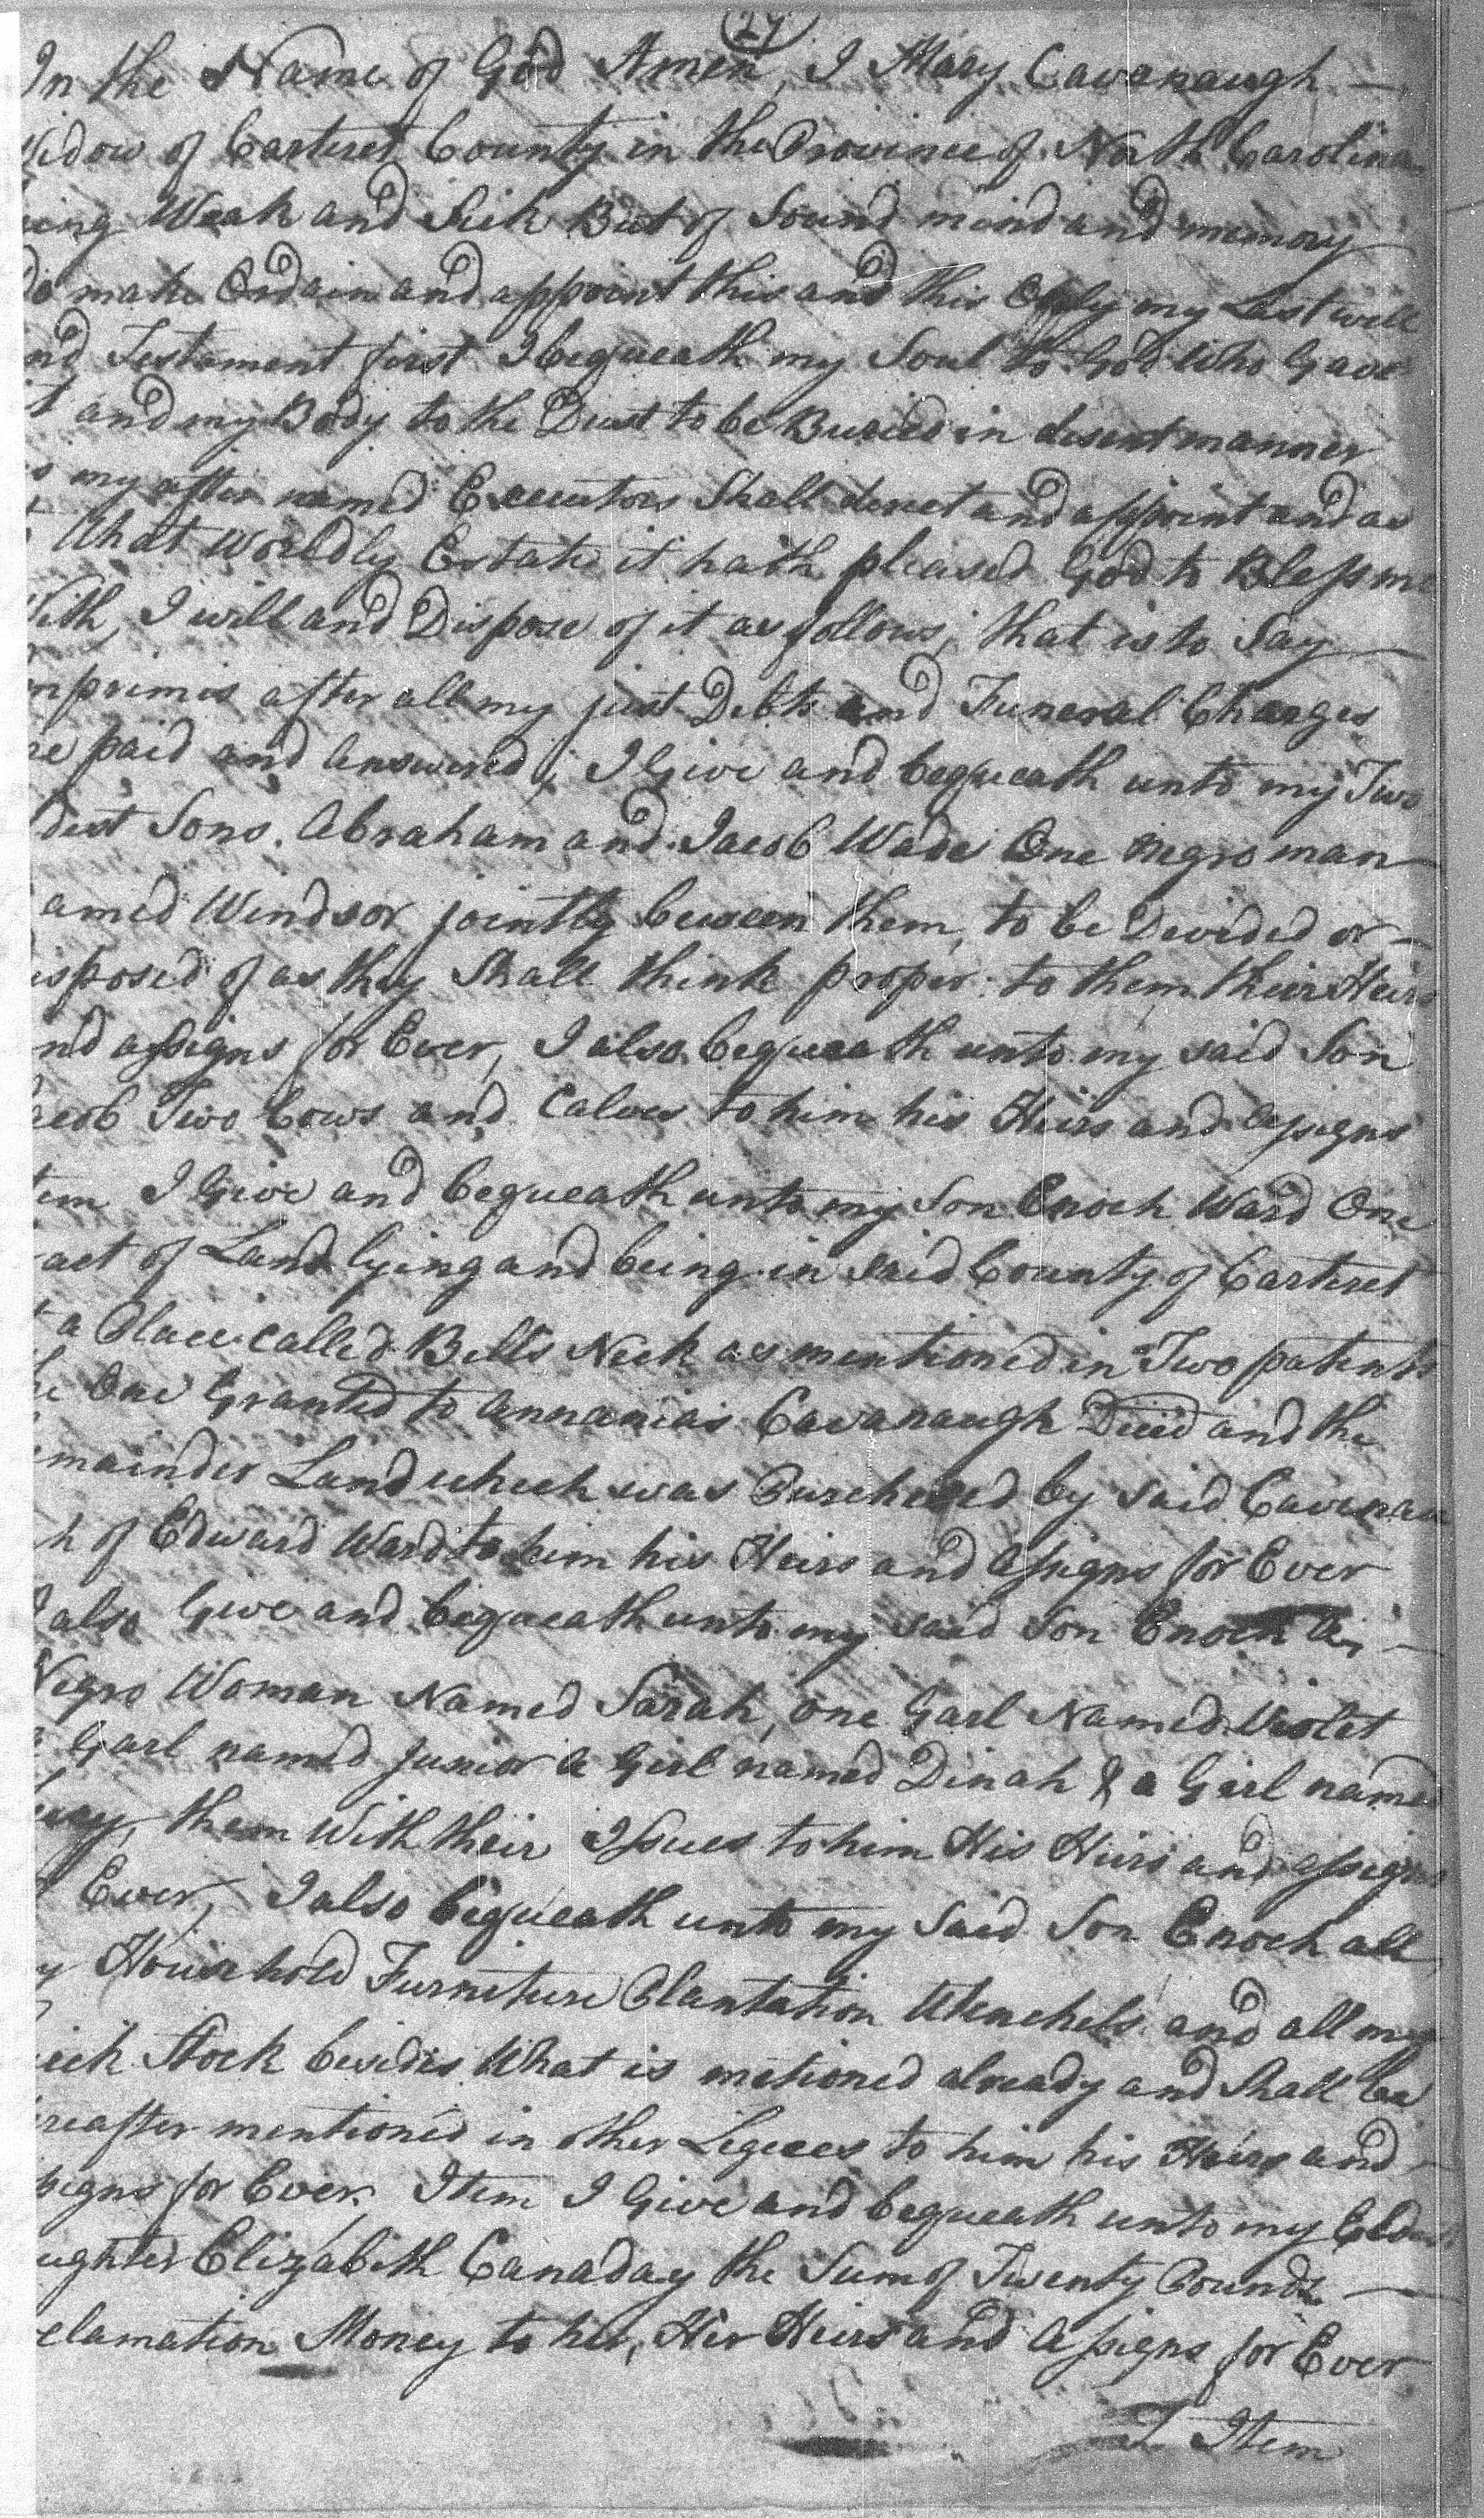 27
In the Name of God Amen, I Mary Cavanaugh —
idow of Carteret County in the Province of North Carolina
ing Weak and Sick But of Sound mind and memory
do make Ordain and appoint this and this Only my Last will
nd Testament first I bequeath my Soul to God Who Gave
it and my Body to the Dust to be Buried in desent manner
s my after named Executors Shall derect and appoint and as
What Worldly Estate it hath pleased God to Bless me
With, I will and Dispose of it as follows, that is to Say —
mprimis after all my just Debts and Funeral Charges
re paid and answered, I Give and bequeath unto my Two
ldest Sons. Abraham and Jacob Wade One negro man
amed Windsor jointly beween them, to be Devided or —
isposed of as they Shall think proper to them their Heirs
nd assigns for Ever, I also bequeath unto my said Son
acob Two Cows and Calves to him his Heirs and assigns
tem I Give and bequeath unto my Son Enoch Ward One
ract of Land lying and being in said County of Carteret
t a Place called Bells Neck as mentioned in Two patents
he One Granted to Annanias Cavanaugh Decd and the
mainder Land which was Purchesed by said Cavanau
h of Edward Ward to him his Heirs and assigns for Ever
I also Give and bequeath unto my said Son Enoch —
Negro Woman Named Sarah, one Garl Named Violet
Garl named Junior a Girl named Dinah & a Girl named
them With their Issues to him His Heirs and assigns
Ever, I also bequeath unto my Said Son Enoch all
y Household Furniture Plantation Utenchels and all my
Stock besides What is metioned already and Shall be
reafter mentioned in other Legeces to him his Heirs and —
signs for Ever. Item I Give and bequeath unto my Eldest
ughter Elizabeth Canaday the Sum of Twenty Pounds —
clamation Money to her, Her Heirs and Assigns for Ever
Item